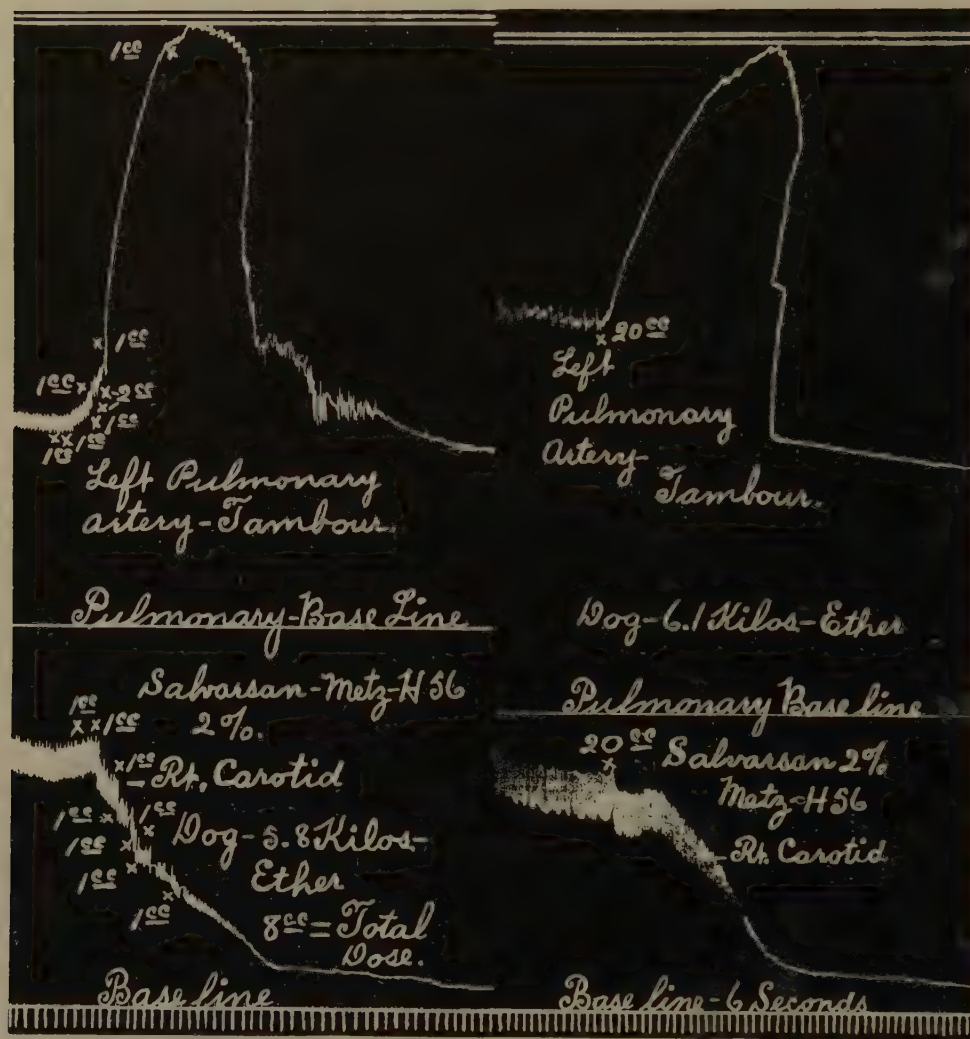 1cc
1cc
1cc x-2cc
1cc
1cc 1cc
Left Pulmonary
artery-Tambour.
Pulmonary-Base Line
Salvarsan-Metz-H56
2%.
1cc
1cc
1cc
Rt. Carotid
1cc 1cc
Dog-5.8 Kilos-
Ether
1cc
1cc
1cc
8cc = Total
Dose.
Base line
20cc
Left
Pulmonary
Artery-
Tambour.
Dog-6.1 Kilos-Ether
Pulmonary Base line
20cc
Salvarsan 2%
Metz-H56
Rt. Carotid
Base line-6 Seconds